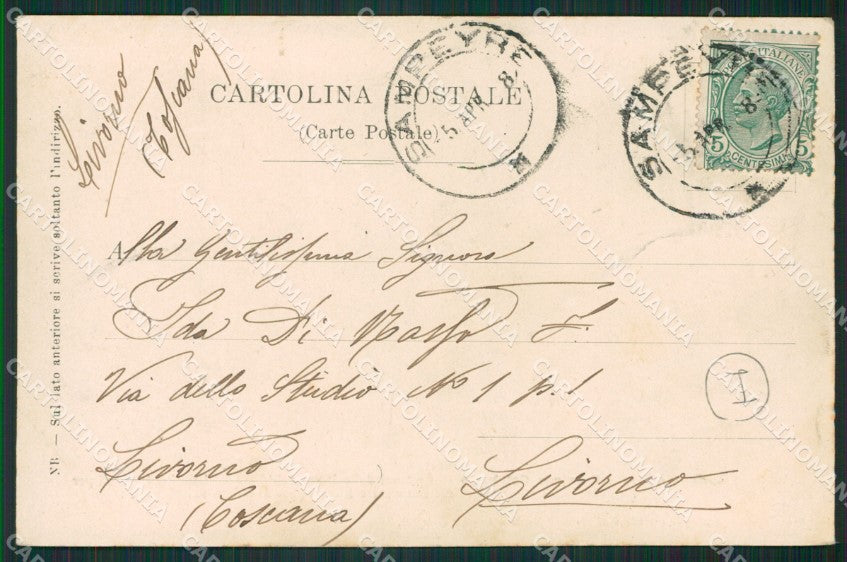 Livorno
(Toscana)
CARTOLINA POSTALE
(Carte Postale)
SAMPEYRE
5 APR 8
SAMPEYRE
5 APR 8
ITALIANE
5 CENTESIMI 5
NB — Sul lato anteriore si scrive soltanto l'indirizzo.
Alla Gentilissima Signora
Ida Di F.
Via dello Studio No 1 p.1
Livorno
(Toscana)
Livorno
CARTOLINOMANIA